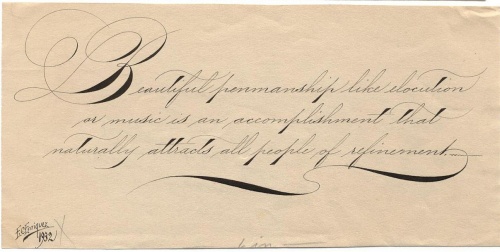 Beautiful penmanship like elocution
or music is an accomplishment that
naturally attracts all people of refinement.
1932
6 in